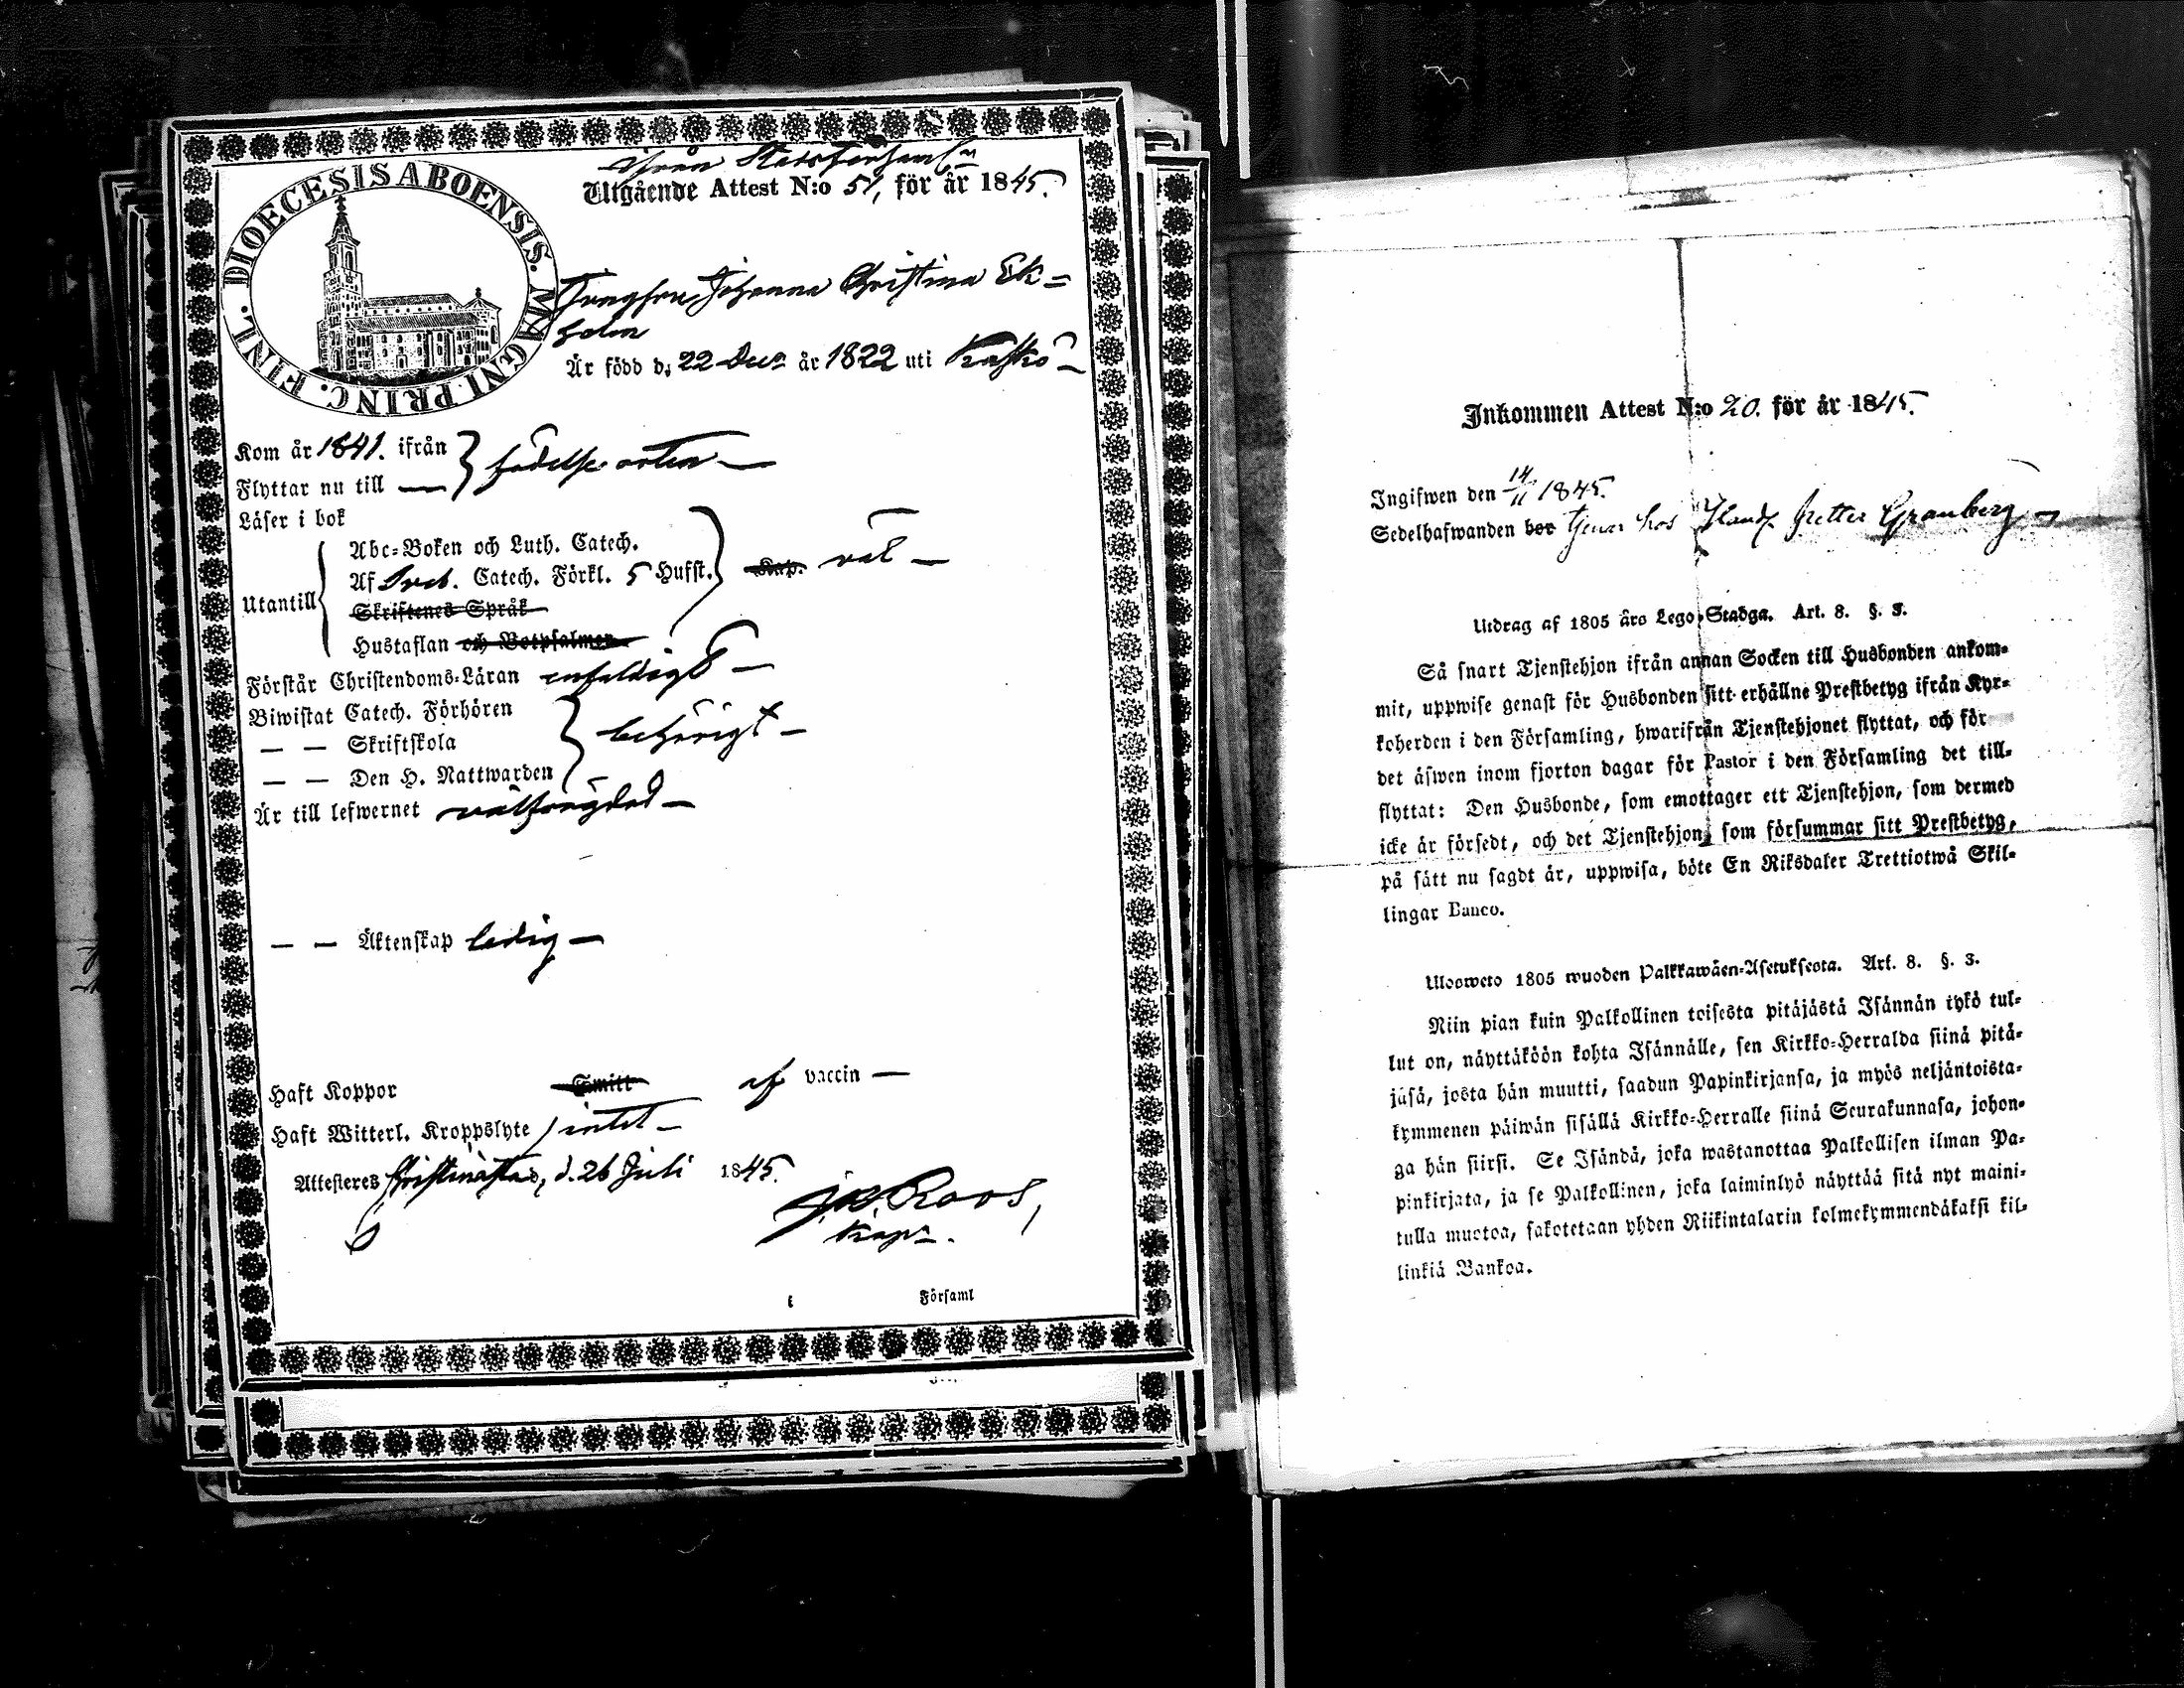 ifrån Stadsförsaml:n
Utgående Attest N:o 51, för år 1845.
DIOECESIS ABOENSIS. MAGNI PRINC. FINL.
Jungfrun Johanna Christina Ek=
holm
Är född d. 22 Decr år 1822 uti Kaskö —
Kom år 1841. ifrån } födelse orten —
Flyttar nu till —
Läser i bok
Utantill { Abc=Boken och Luth. Catech.
Af Sveb. Catech. Förkl. 5 Hufst. } Kap. väl —
Skriftenes Språk
Hustaflan och Botpsalmen
Förstår Christendoms=Läran enfaldigt —
Biwistat Catech. Förhören
— — Skriftskola } behörigt —
— — Den H. Nattwarden
Är till lefwernet välfrägdad —
— — Äktenskap ledig —
Haft Koppor Smitt af vaccin —
Haft Witterl. Kroppslyte intet —
Attesteres Christinæstad, d. 26 Juli 1845.
Roos,
Kapn.
i Församl
Inkommen Attest N:o 20. för år 1845.
Ingifwen den 14/11 1845.
Sedelhafwanden bor tjenar hos Handl. Petter Granberg —
Utdrag af 1805 års Lego=Stadga. Art. 8. §. 3.
Så snart Tjenstehjon ifrån annan Socken till Husbonden ankom=
mit, uppwise genast för Husbonden sitt erhållne Prestbetyg ifrån Kyr=
koherden i den Församling, hwarifrån Tjenstehjonet flyttat, och för
det äfwen inom fjorton dagar för Pastor i den Församling det till=
flyttat: Den Husbonde, som emottager ett Tjenstehjon, som dermed
icke är försedt, och det Tjenstehjon, som försummar sitt Prestbetyg,
på sätt nu sagdt är, uppwisa, böte En Riksdaler Trettiotwå Skil=
lingar Banco.
Ulosweto 1805 wuoden Palkkawäen=Asetuksesta. Art. 8. §. 3.
Niin pian kuin Palkollinen toisesta pitäjästä Isännän tykö tul=
lut on, näyttäköön kohta Isännälle, sen Kirkko=Herralda siinä pitä=
jäsä, josta hän muutti, saadun Papinkirjansa, ja myös neljäntoista=
kymmenen päiwän sisällä Kirkko=Herralle siinä Seurakunnasa, johon=
ga hän siirsi. Se Isändä, joka wastanottaa Palkollisen ilman Pa=
pinkirjata, ja se Palkollinen, joka laiminlyö näyttää sitä nyt maini=
tulla muotoa, sakotetaan yhden Riikintalarin kolmekymmendäkaksi kil=
linkiä Bankoa.